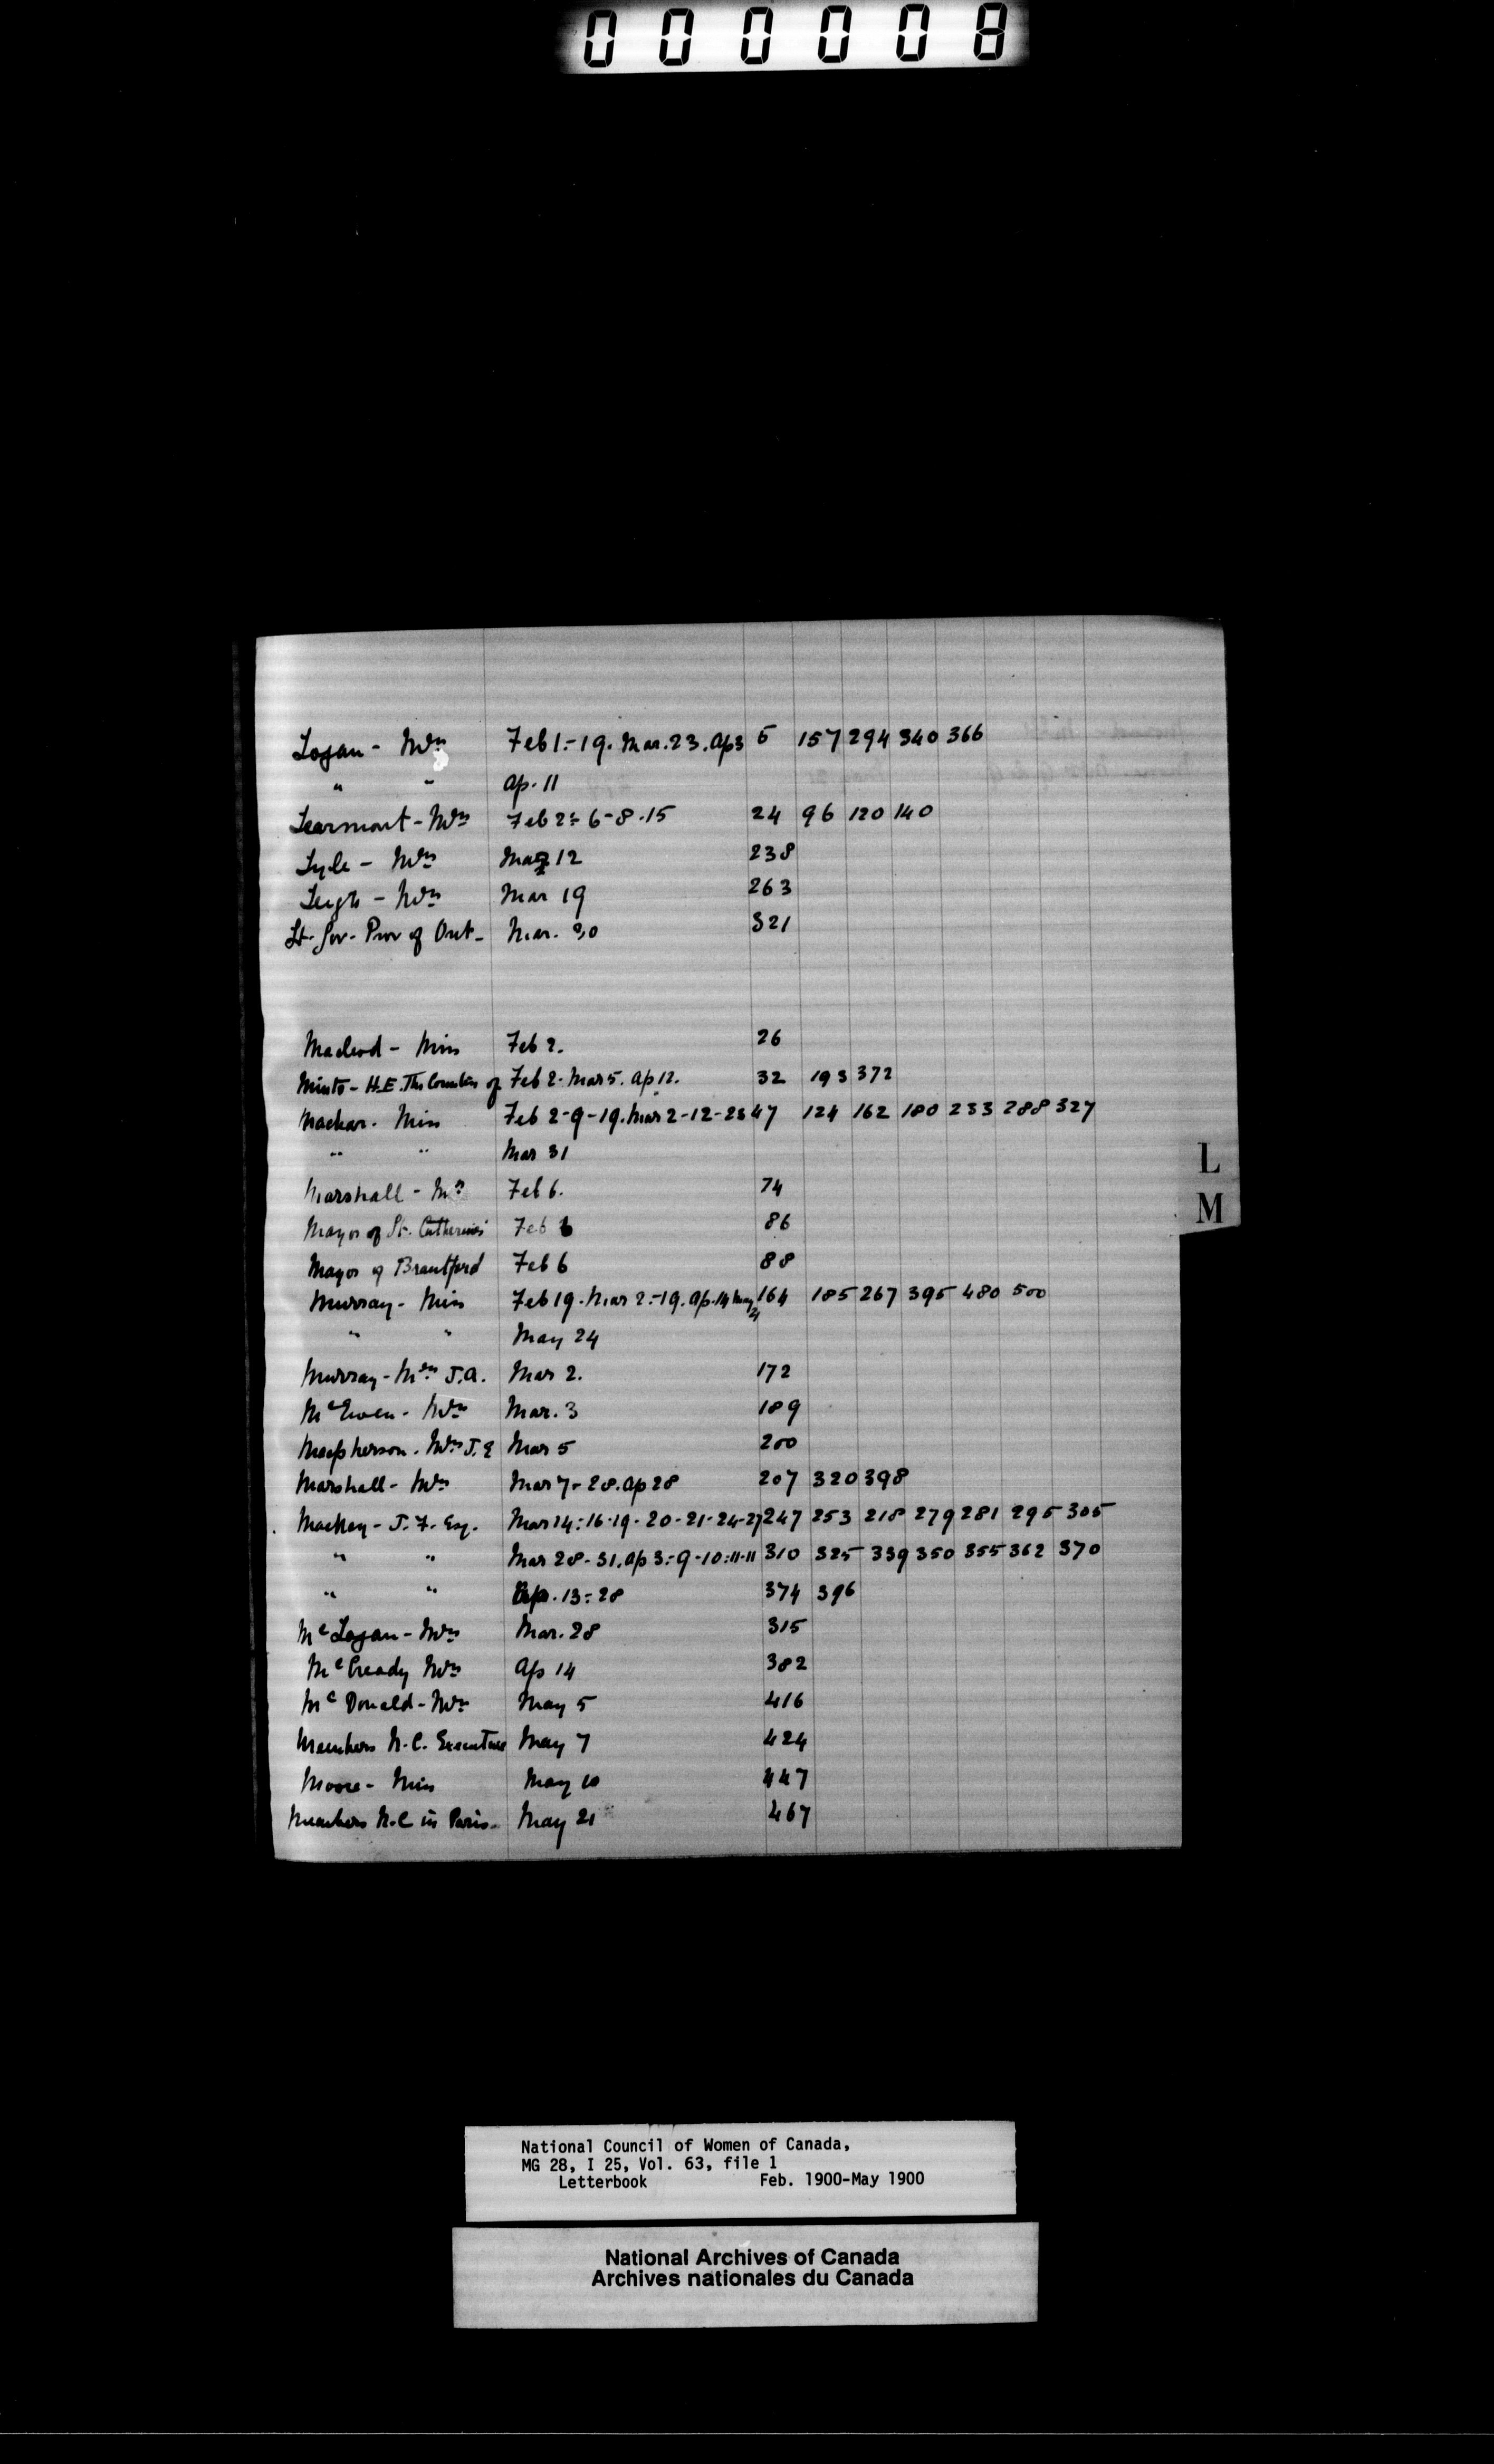 000008
Logan - Mrs Feb 1.-19. Mar. 23. Ap 3 5 157 294 340 366
" " Ap. 11
Learmont - Mrs Feb 2 - 6 - 8 - 15 24 96 120 140
Lyle - Mrs Mar 12 238
Leigh - Mrs Mar 19 263
Lt. Gov. Prov of Ont - Mar. 30 321
Macleod - Miss Feb 2. 26
Minto - H.E. The Countess of Feb 2. Mar 5. Ap 12. 32 193 372
Machar. Miss Feb 2-9-19. Mar 2-12-23 47 124 162 180 233 288 327
" " Mar 31
Marshall - Feb 6. 74
Mayor of St. Catherines Feb 6 86
Mayor of Brantford Feb 6 88
Murray - Miss Feb 19. Mar 2.-19. Ap. 14 May 21 164 185 267 395 480 500
" " May 24
Murray - Mrs J.A. Mar 2. 172
McEwen - Mrs Mar. 3 189
Macpherson. Mrs J.E Mar 5 200
Marshall - Mrs Mar 7 - 28. Ap 28 207 320 398
Mackay - J. F. Esq. Mar 14:-16-19-20-21-24-27 247 253 218 279 281 295 305
" " Mar 28-31. Ap 3:-9-10:11-11 310 325 339 350 355 362 370
" " Apr. 13:-28 374 396
McLogan - Mrs Mar. 28 315
McCready Mrs Ap 14 382
McDonald - Mrs May 5 416
Members N.C. Executive May 7 424
Moore - Miss May 10 447
Members N.C in Paris - May 21 467
L
M
National Council of Women of Canada,
MG 28, I 25, Vol. 63, file 1
Letterbook Feb. 1900-May 1900
National Archives of Canada
Archives nationales du Canada